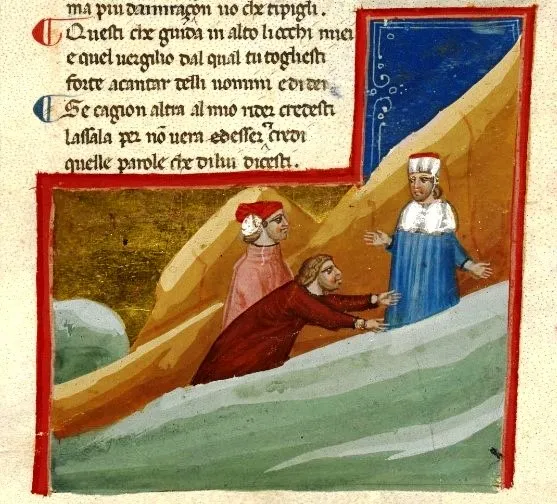 ma piu damiraçon uo che tipigli.
Questi che guida in alto liocchi miei
e quel uergilio dal qual tu togliesti
forte acantar delli uomini e di dei
Se cagion altra al mio rider credesti
lassala per nō uera ed esser credi
quelle parole che di lui dicesti.